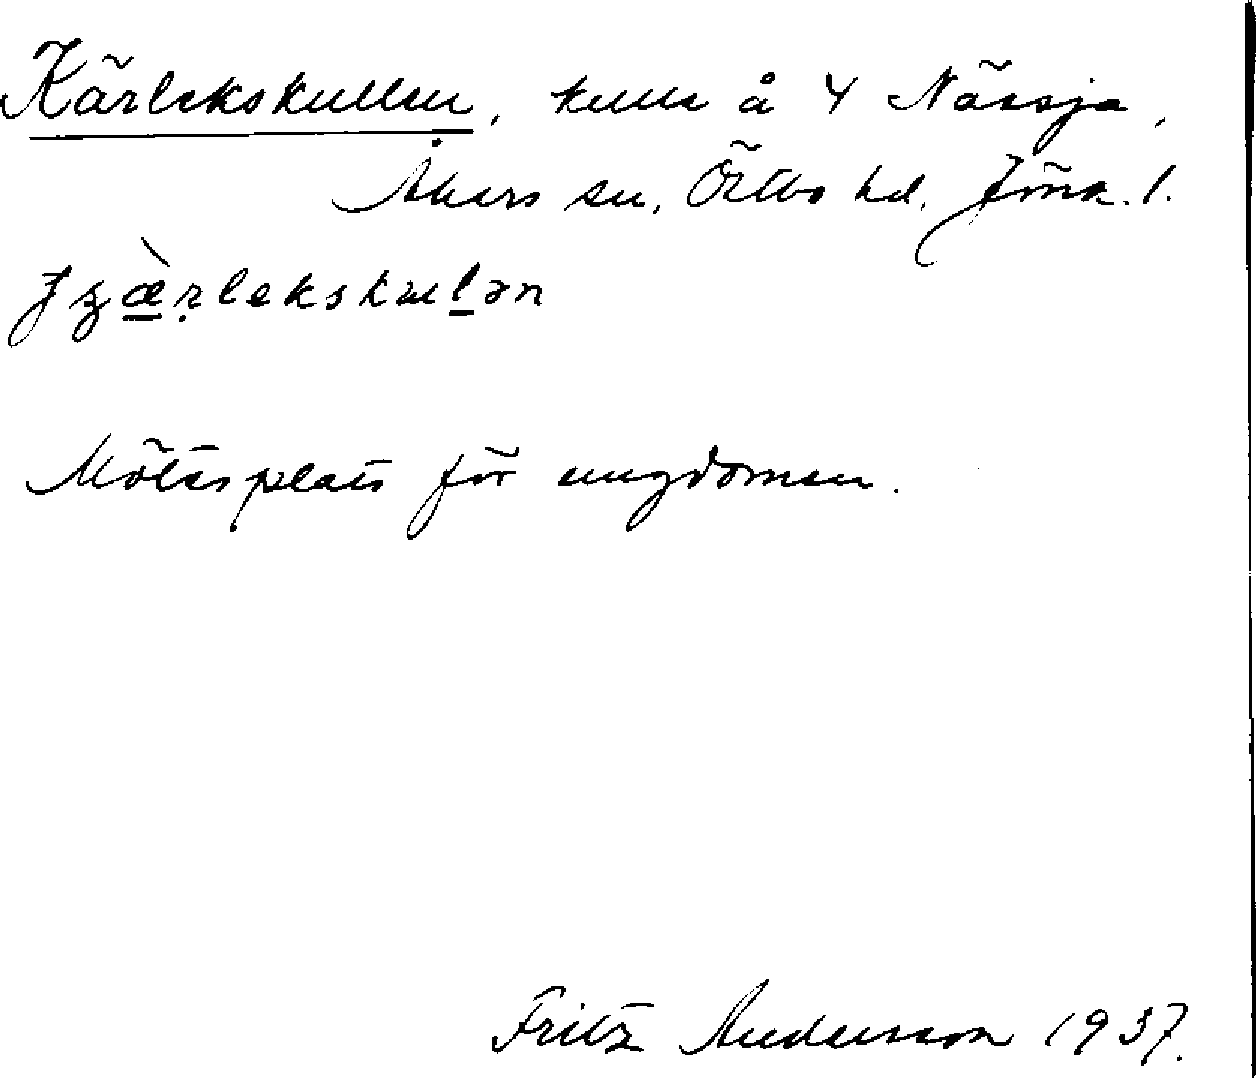 Kärlekskullen, kulle å 4 Nässja,
Åkers sn, Östbo hd, Jönk. l.
Mötesplats för ungdomen.
Fritz Andersson 1937.